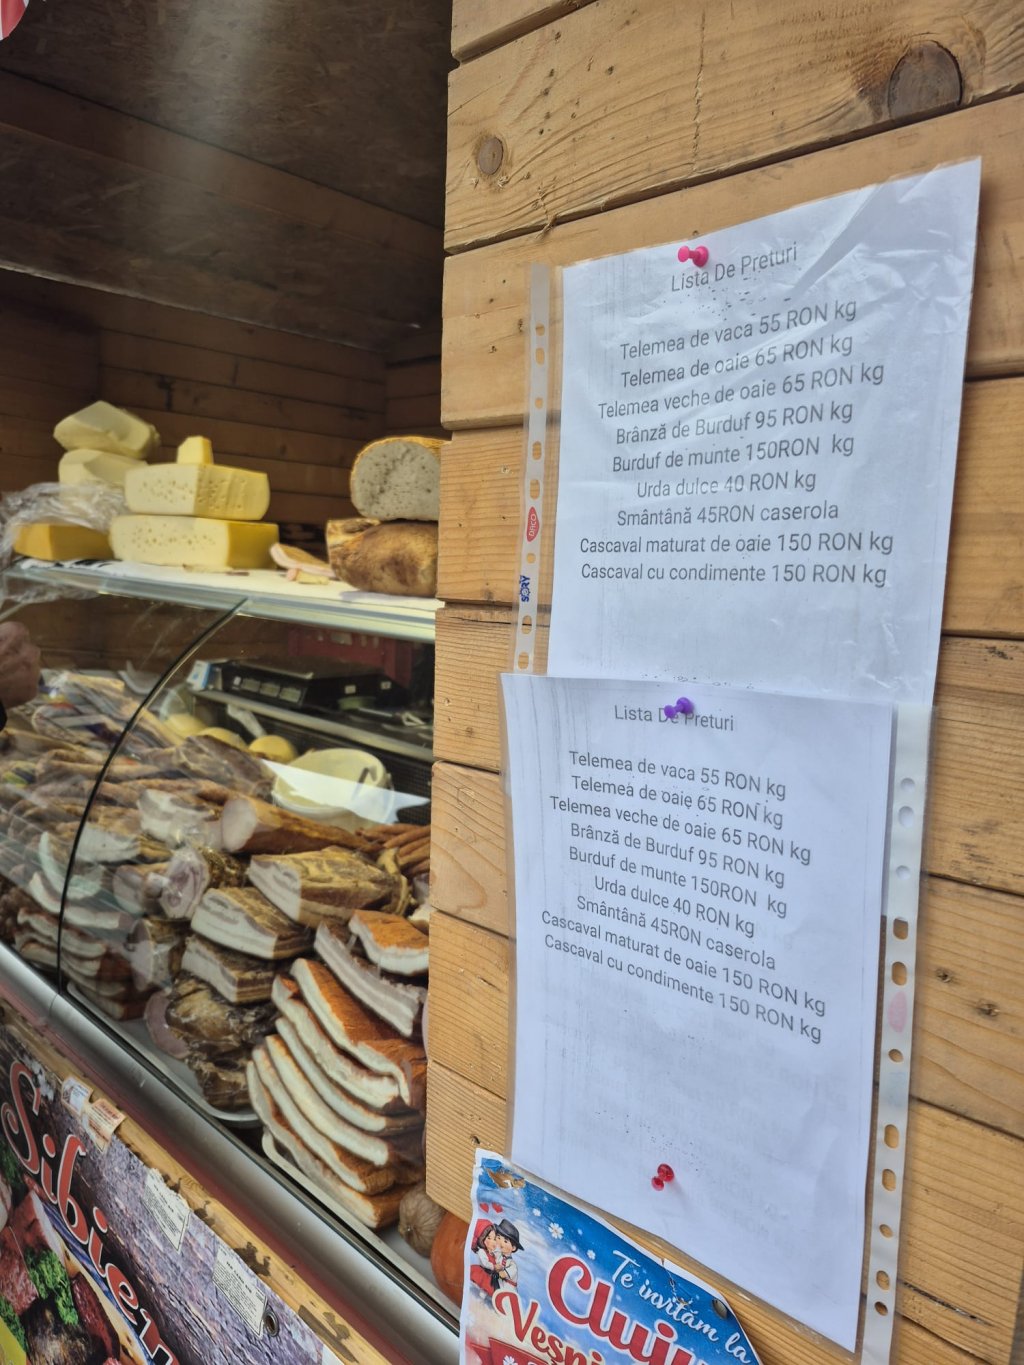 Lista De Preturi
Telemea de vaca 55 RON kg
Telemea de oaie 65 RON kg
Telemea veche de oaie 65 RON kg
Brânză de Burduf 95 RON kg
Burduf de munte 150RON kg
Urda dulce 40 RON kg
Smântână 45RON caserola
Cascaval maturat de oaie 150 RON kg
Cascaval cu condimente 150 RON kg
DACO
SORY
Lista De Preturi
Telemea de vaca 55 RON kg
Telemea de oaie 65 RON kg
Telemea veche de oaie 65 RON kg
Brânză de Burduf 95 RON kg
Burduf de munte 150RON kg
Urda dulce 40 RON kg
Smântână 45RON caserola
Cascaval maturat de oaie 150 RON kg
Cascaval cu condimente 150 RON kg
Te invităm la
Cluju
Veșni